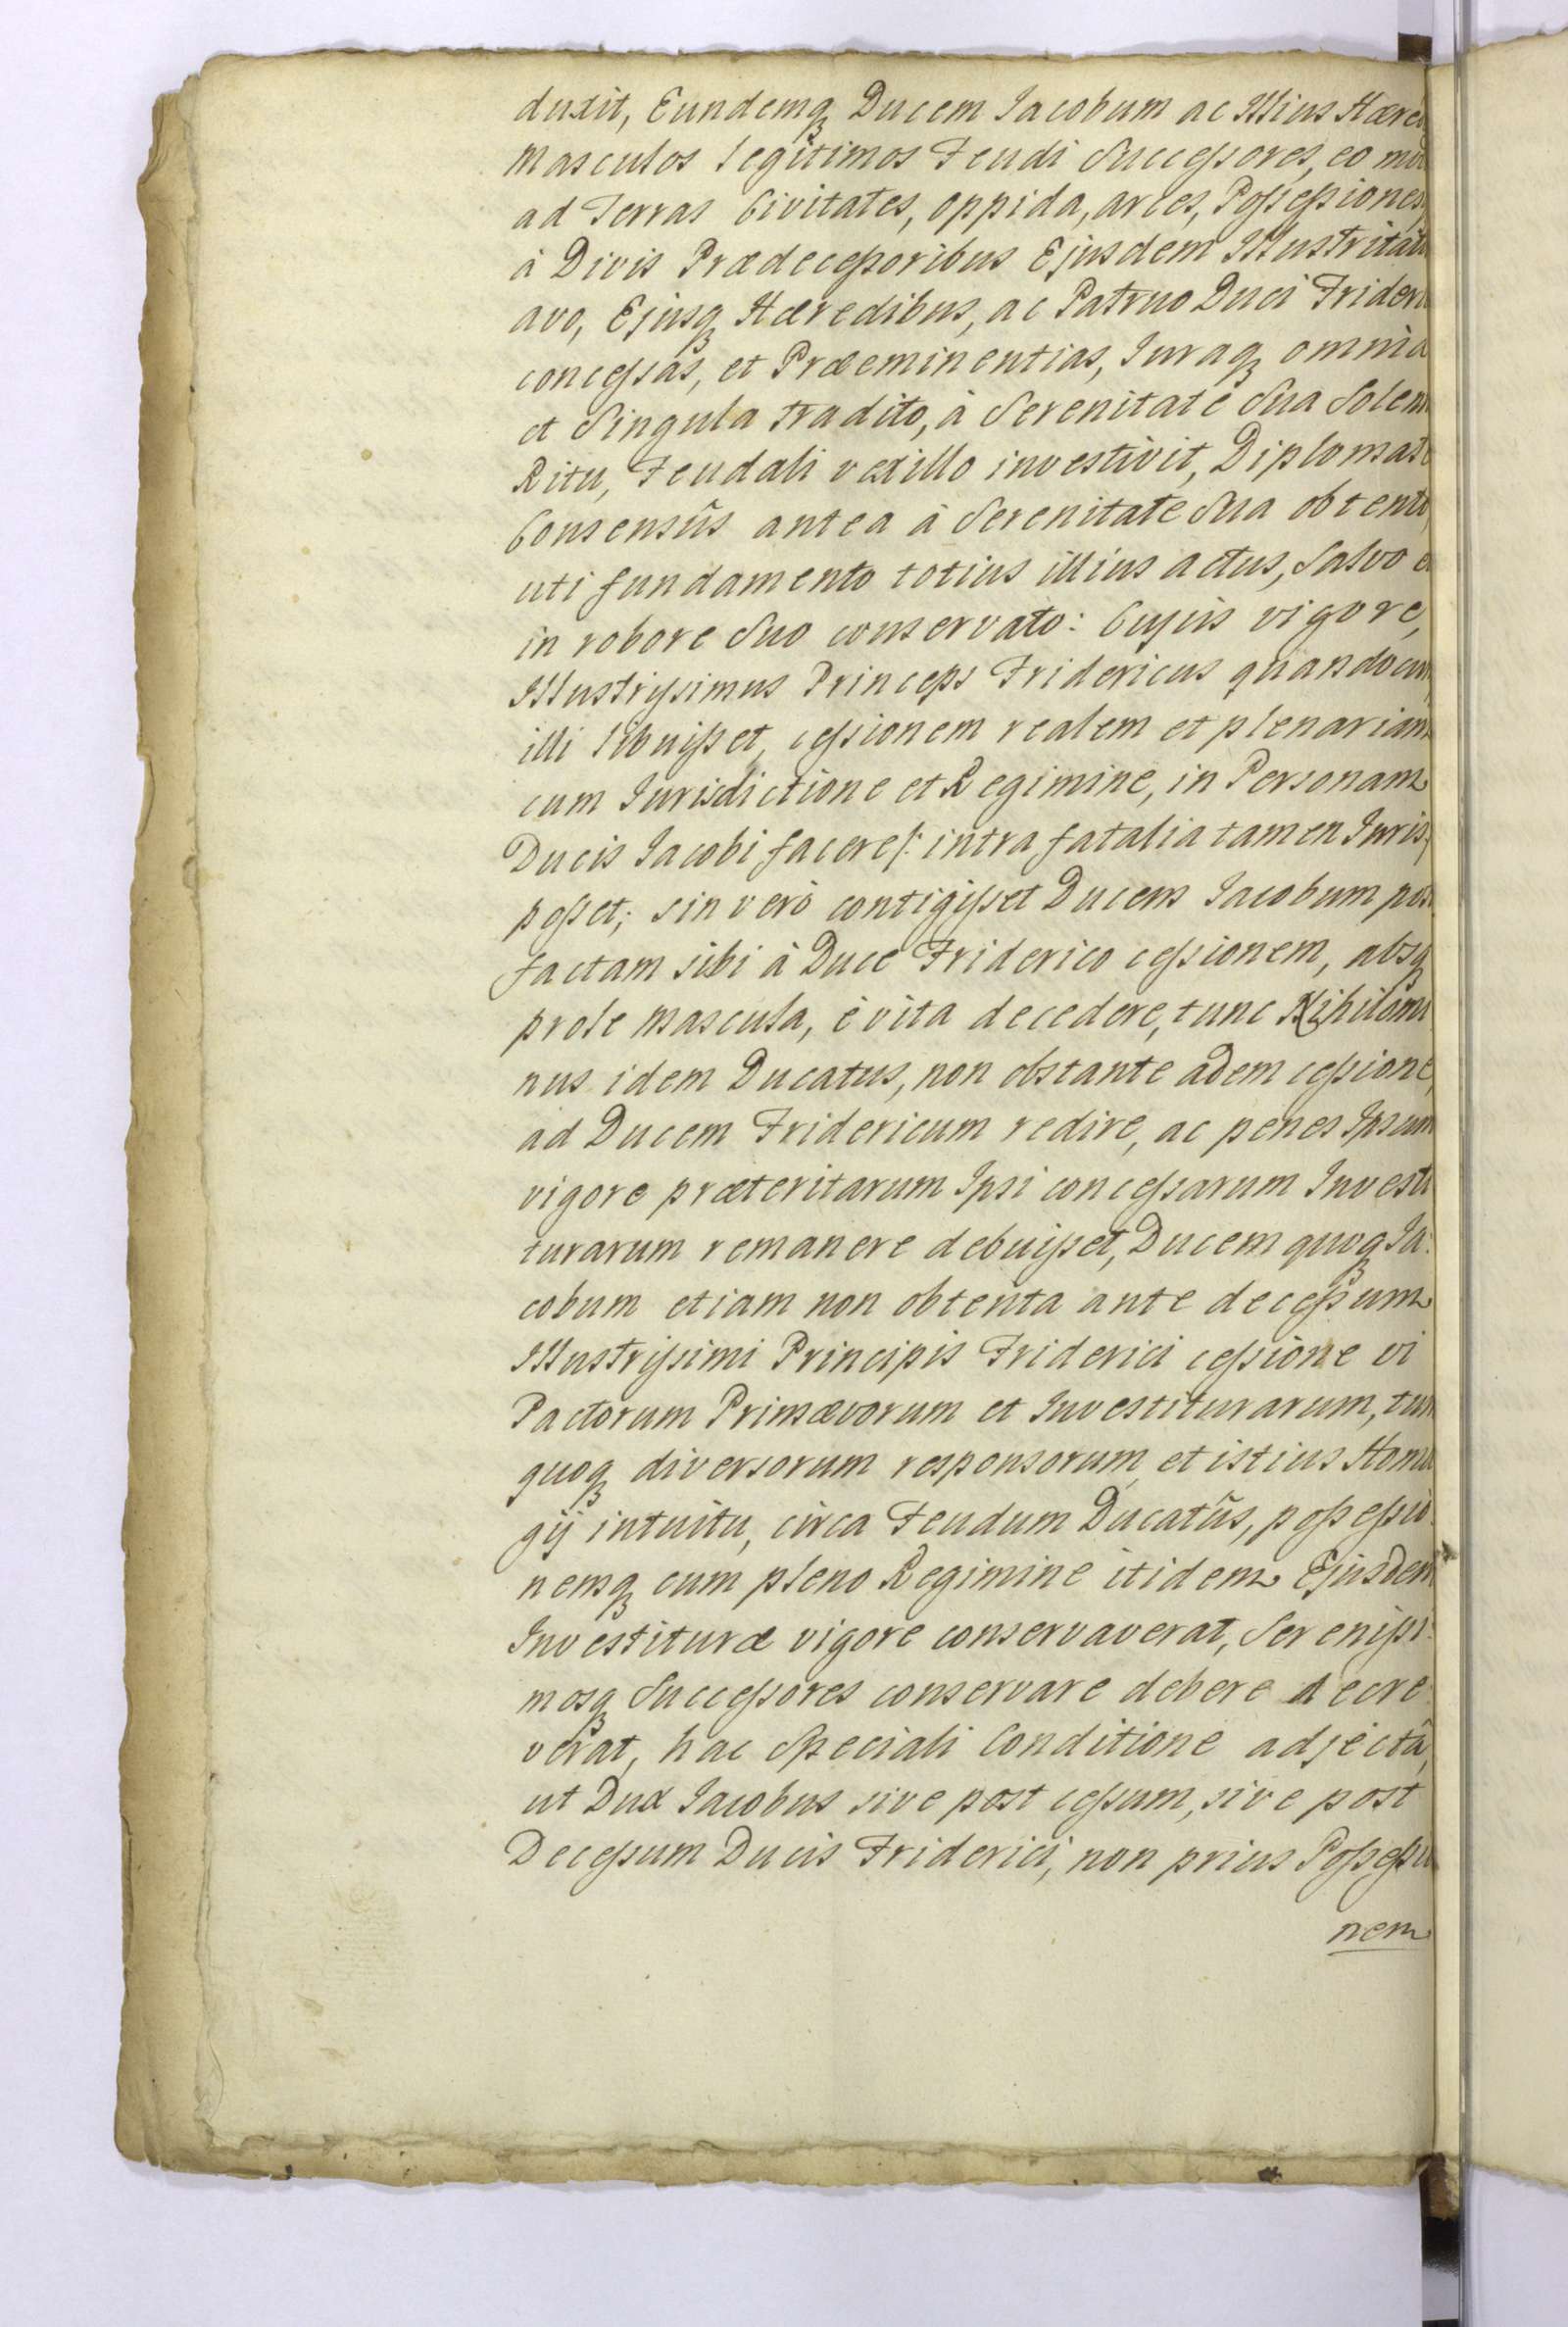 duxit, Eundemq Ducem Iacobum ac Illius Hæred
Masculos legitimos Feudi Successores, eo mod
ad Terras Civitates, oppida, arces, Possessiones
à Divis Prædecessoribus Ejusdem Illustritati
avo, Ejusq Hæredibus, ac Patruo Duci Frideri
concessas, et Præeminentias, Iuraq omnia
et Singula tradito, à Serenitate Sua Solem
Ritu, Feudali vexillo investivit, Diplomate
Consensûs antea à Serenitate Sua obtento
uti fundamento totius illius actus, Salvo e
in robore Suo conservato: Cujus vigore,
Illustrissimus Princeps Fridericus quandocun
illi libuisset, cessionem realem et plenariam
cum Iurisdictione et Regimine, in Personam
Ducis Iacobi facere /: intra fatalia tamen Iuris :/
posset; sin verò contigisset Ducem Iacobum pos
factam sibi à Duce Friderico cessionem, absq
prole mascula, è vita decedere, tunc Nihilomi
nus idem Ducatus, non obstante adem cessione,
ad Ducem Fridericum redire, ac penes Ipsum
vigore præteritarum Ipsi concessarum Investi
turarum remanere debuisset, Ducem quoq Ia:
cobum etiam non obtenta ante decessum
Illustrissimi Principis Friderici cessione vi
Pactorum Primævorum et Investiturarum, tum
quoq diversorum responsorum, et istius Homa
gij intuitu, circa Feudum Ducatûs, possessio:
nemq cum pleno Regimine itidem Ejusdem
Investituræ vigore conservaverat, Serenissi:
mosq Successores conservare debere decre:
verat, hac Speciali Conditione adjectâ,
ut Dux Iacobus sive post cessum, sive post
Decessum Ducis Friderici, non prius Possessio
nem